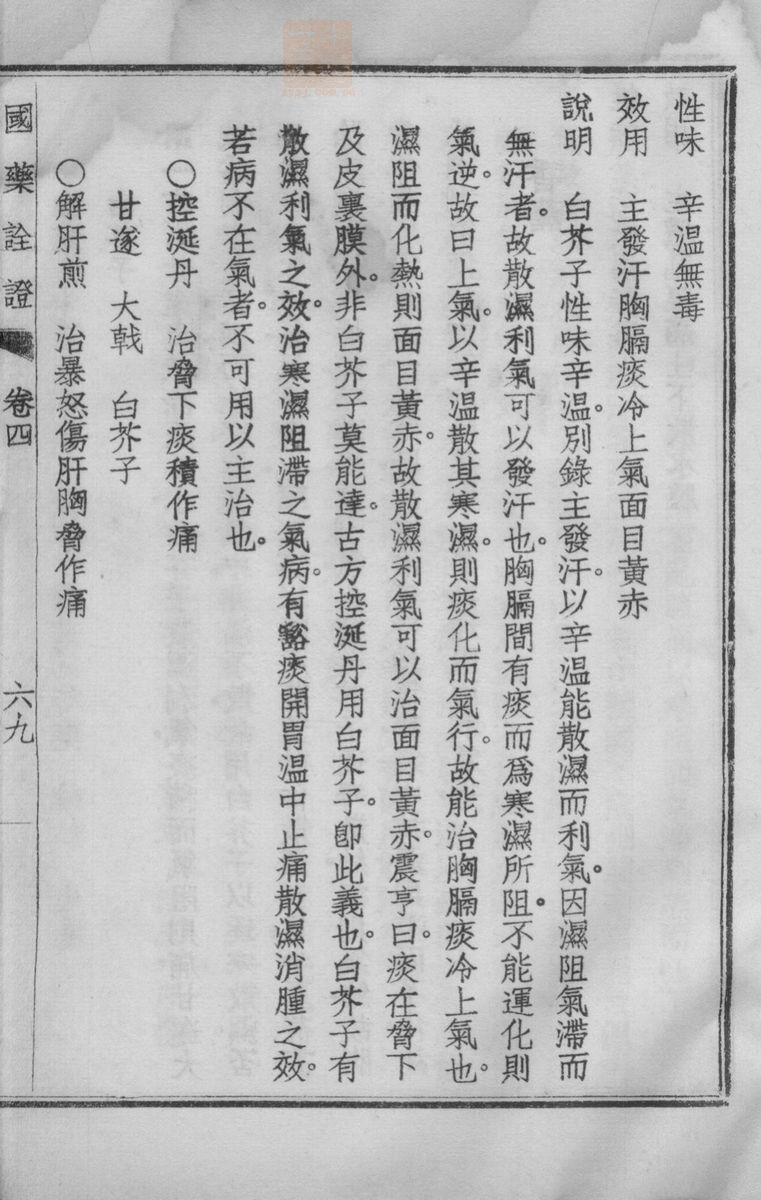 性味　辛温無毒
效用　主發汗胸膈痰冷上氣面目黃赤
說明　白芥子性味辛温。別錄主發汗。以辛温能散濕而利氣。因濕阻氣滯而
無汗者。故散濕利氣可以發汗也。胸膈間有痰而爲寒濕所阻。不能運化則
氣逆。故曰上氣。以辛温散其寒濕。則痰化而氣行。故能治胸膈痰冷上氣也。
濕阻而化熱則面目黃赤。故散濕利氣可以治面目黃赤。震亨曰。痰在脅下
及皮裏膜外。非白芥子莫能達。古方控涎丹用白芥子。卽此義也。白芥子有
散濕利氣之效。治寒濕阻滯之氣病。有豁痰開胃温中止痛散濕消腫之效。
若病不在氣者。不可用以主治也。
〇控涎丹　治脅下痰積作痛
甘遂　大戟　白芥子
〇解肝煎　治暴怒傷肝胸脅作痛
國藥詮證　卷四　六九